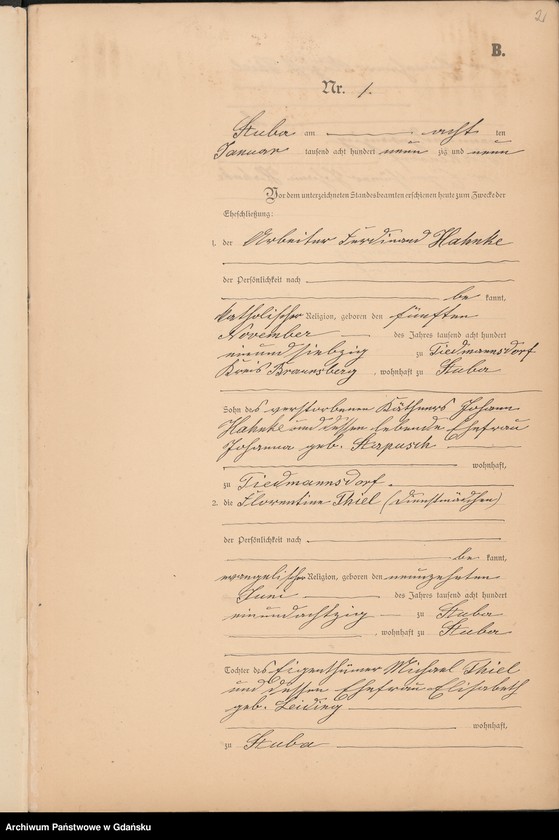 21
B.
Nr. 1.
Stuba am acht ten
Januar tausend acht hundert neun zig und neun
Vor dem unterzeichneten Standesbeamten erschienen heute zum Zwecke der
Eheschließung:
1. der Arbeiter Ferdinand Hahnke
der Persönlichkeit nach
be kannt,
katholischer Religion, geboren den fünften
November des Jahres tausend acht hundert
zu Tiedmannsdorf
Kreis Braunsberg, wohnhaft zu Stuba
Sohn des verstorbenen Käthners Johann
Hahnke und dessen lebende Ehefrau
Johanna geb.
wohnhaft,
zu Tiedmannsdorf.
2. die Florentine Thiel (Dienstmädchen)
der Persönlichkeit nach
be kannt,
evangelischer Religion, geboren den neunzehnten
Juni des Jahres tausend acht hundert
einundachtzig zu Stuba
, wohnhaft zu Stuba
Tochter des Eigenthümer Michael Thiel
und dessen Ehefrau Elisabeth
geb. Leiding
wohnhaft,
zu Stuba
Archiwum Państwowe w Gdańsku